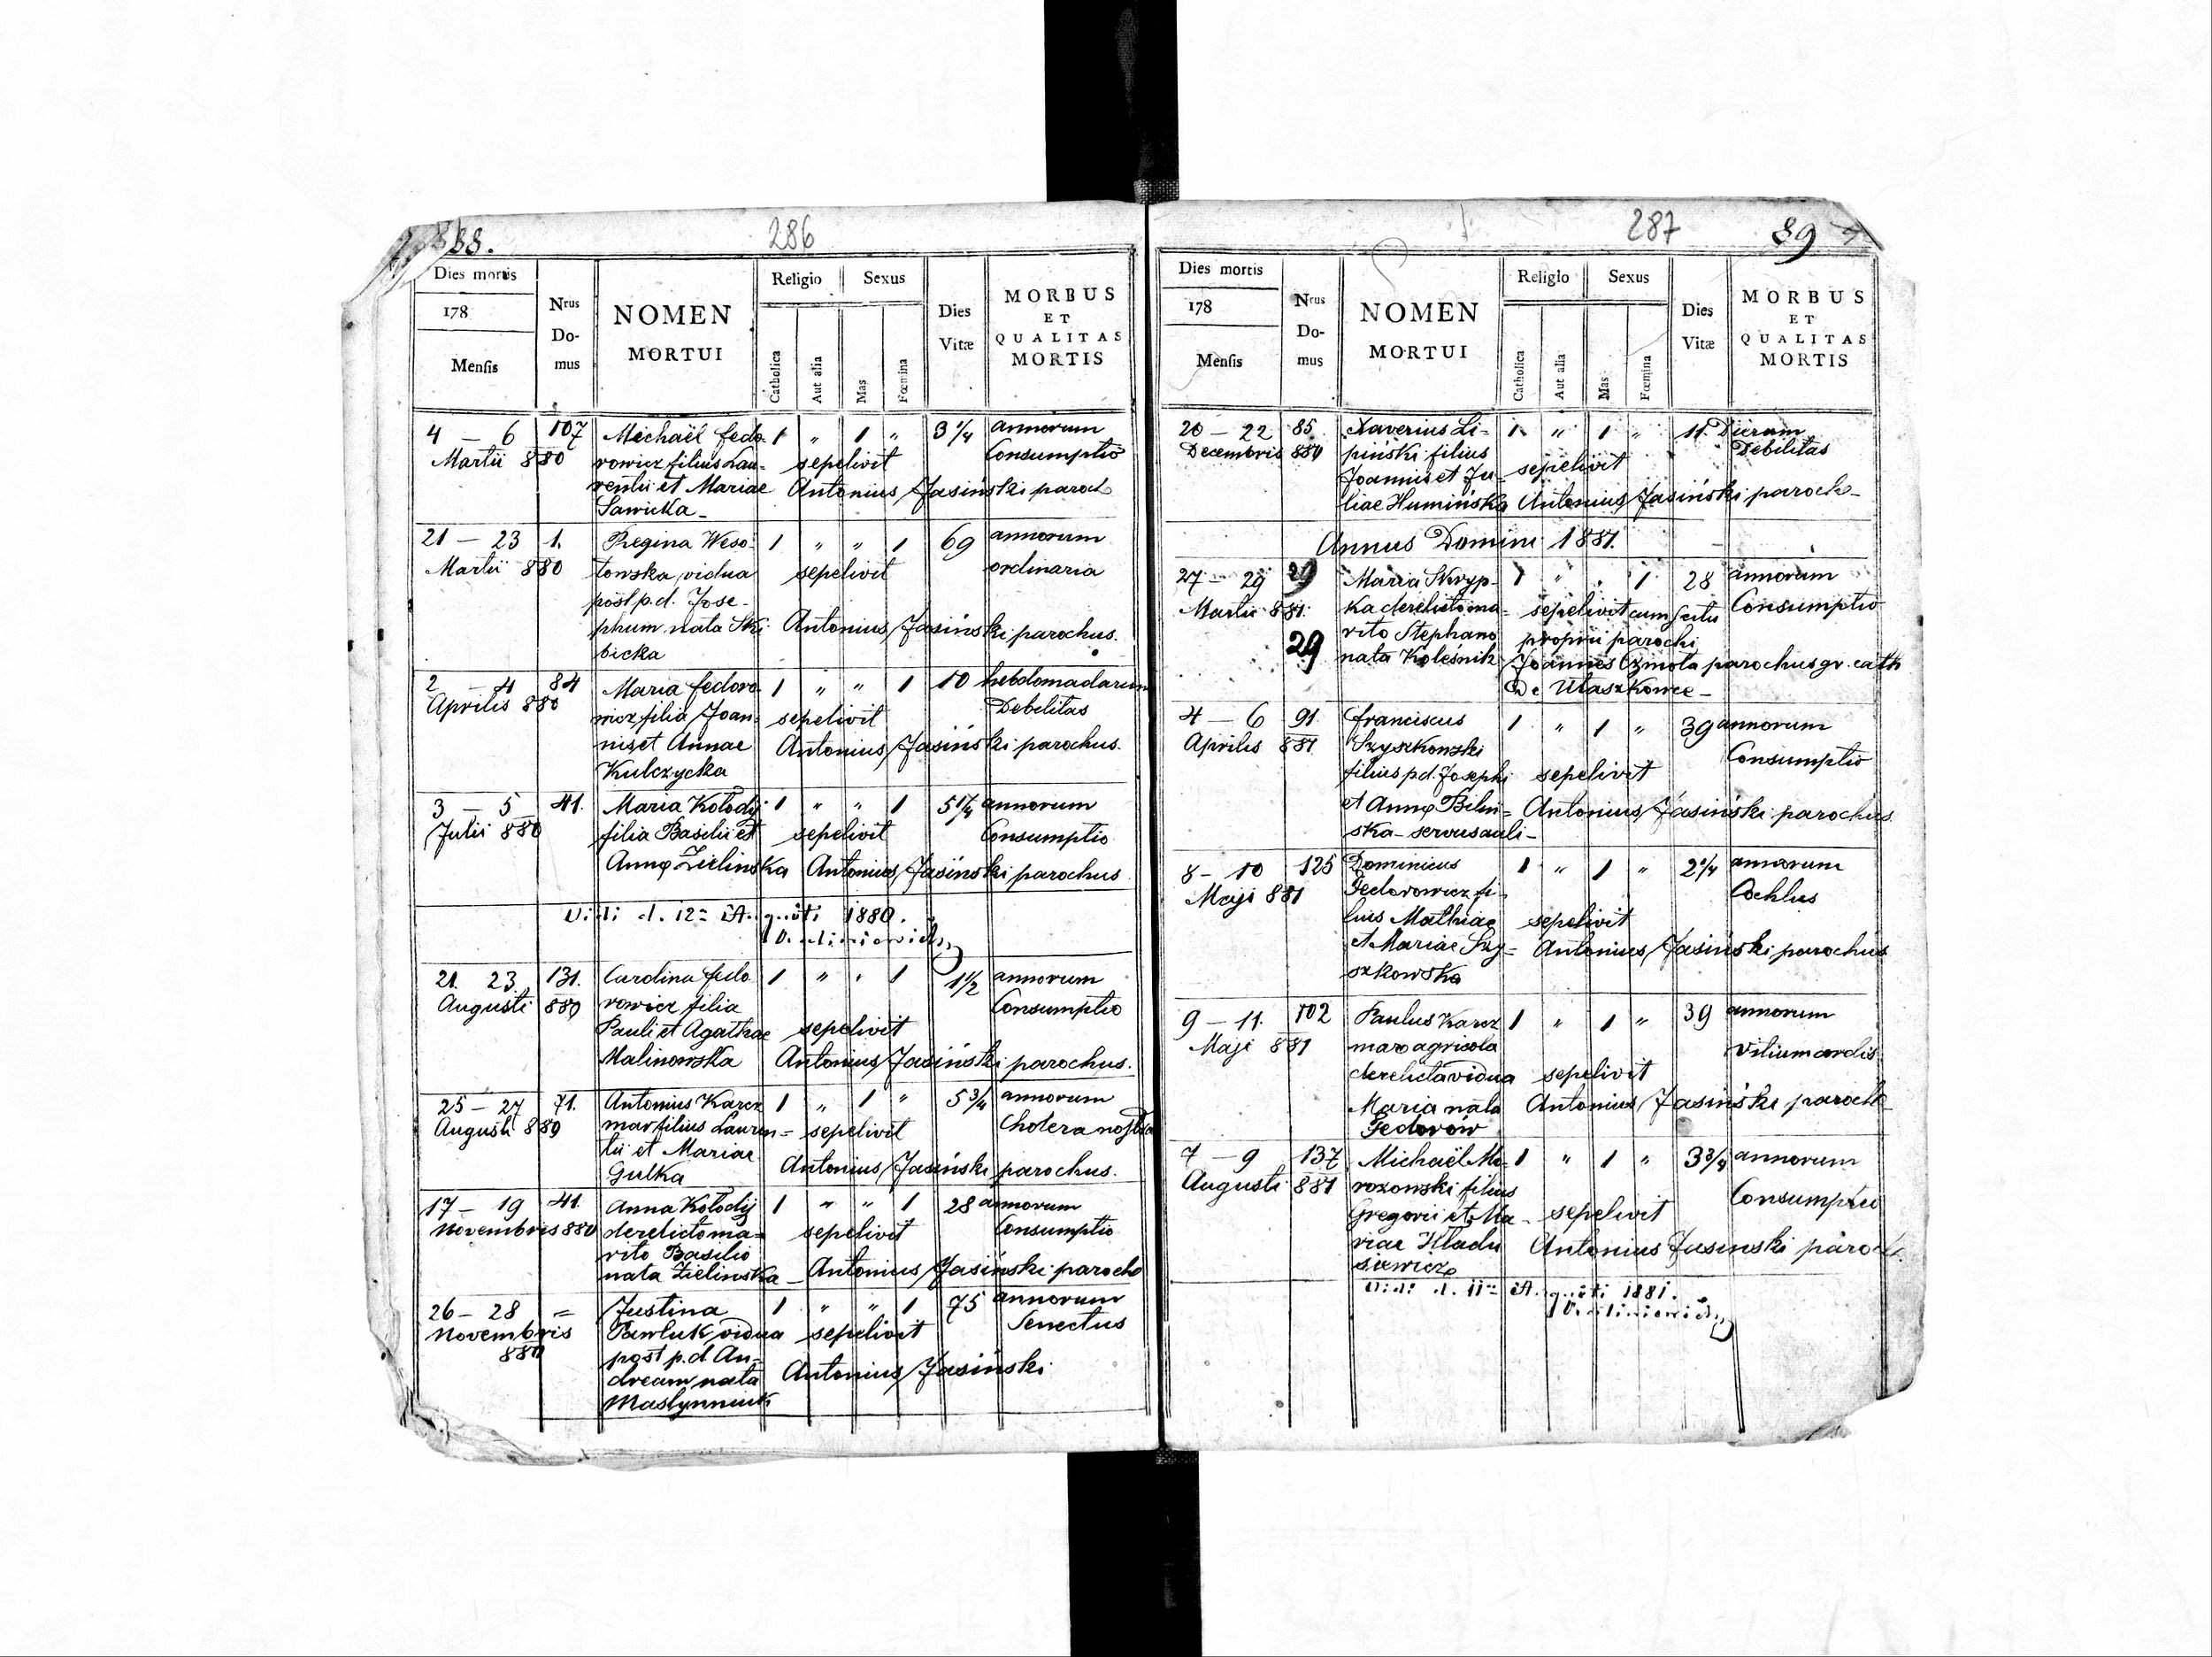 88.
286
Dies mortis
178
Mensis
Nrus
Do-
mus
NOMEN
MORTUI
Religio
Catholica
Aut alia
Sexus
Mas
Fœmina
Dies
Vitæ
MORBUS
ET
QUALITAS
MORTIS
4 – 6 107 Michaël Fedo- 1 " 1 " 3 1/4 annorum
Martii 880 rowicz filius Lau- sepelivit Consumptio
rentii et Mariae Antonius Jasiński paroch
Sawicka
21 – 23 1. Regina Weso- 1 " " 1 69 annorum
Martii 880 łowska vidua sepelivit ordinaria
post p.d. Jose-
phum nata Ski- Antonius Jasiński parochus.
bicka
2 – 4 84 Maria Fedoro- 1 " " 1 10 hebdomadarum
Aprilis 880 wicz filia Joan- sepelivit Debilitas
nis et Annae Antonius Jasiński parochus.
Kulczycka
3 – 5 41. Maria Kołodij 1 " " 1 5 1/4 annorum
Julii 880 filia Basilii et sepelivit Consumptio
Annę Zielinska Antonius Jasiński parochus
Vidi d. 12 1880.
21. 23. 131. Carolina Fedo- 1 " " 1 1 1/2 annorum
Augusti 880 rowicz filia Consumptio
Pauli et Agathae sepelivit
Malinowska Antonius Jasiński parochus.
25 – 27 71. Antonius Karcz 1 " 1 " 5 3/4 annorum
Augusti 880 mar filius Lauren- sepelivit Cholera nostra
tii et Mariae
Gulka Antonius Jasiński parochus.
17 – 19 41. Anna Kołodij 1 " " 1 28 annorum
Novembris 880 derelicto ma- sepelivit Consumptio
rito Basilio
nata Zielinska Antonius Jasiński paroch
26 – 28 = Justina 1 " " 1 75 annorum
Novembris Pawluk vidua sepelivit Senectus
880 post p.d. An-
dream nata Antonius Jasiński
Maslynniuk
287
89
Dies mortis
178
Mensis
Nrus
Do-
mus
NOMEN
MORTUI
Religio
Catholica
Aut alia
Sexus
Mas
Fœmina
Dies
Vitæ
MORBUS
ET
QUALITAS
MORTIS
20 – 22 85. Xaverius Li- 1 " 1 " 11. Dierum
Decembris 880 piński filius Debilitas
Joannis et Ju- sepelivit
liae Humińska Antonius Jasiński paroch
Annus Domini 1881.
27 – 29 29 Maria Skryp- 1 " . 1 28 annorum
Martii 881. ka derelicto ma- sepelivit cum scitu Consumptio
29 rito Stephano proprii parochi
nata Koleśnik Joannes Czmola parochus gr. cath
de Ułaszkowce
4 – 6 91. Franciscus 1 " 1 " 39 annorum
Aprilis 881. Szyszkowski Consumptio
filius p.d. Josephi sepelivit
et Annę Bilin- Antonius Jasiński parochus
ska – servus auli-
8 – 10 125 Dominicus 1 " 1 " 2 1/4 annorum
Maji 881 Fedorowicz fi- Cochlus
lius Mathiae sepelivit
et Mariae Szy- Antonius Jasiński parochus
szkowska
9 – 11. 102 Paulus Karcz 1 " 1 " 39 annorum
Maji 881 mar agricola Vitium cordis
derelicta vidua sepelivit
Maria nata Antonius Jasiński paroch
Fedorów
7 – 9 137 Michaël Mo- 1 " 1 " 3 3/4 annorum
Augusti 881 rozowski filius Consumptio
Gregorii et Ma- sepelivit
riae Hladu Antonius Jasinski paroch
siewicz
Vidi d. 11 1881.